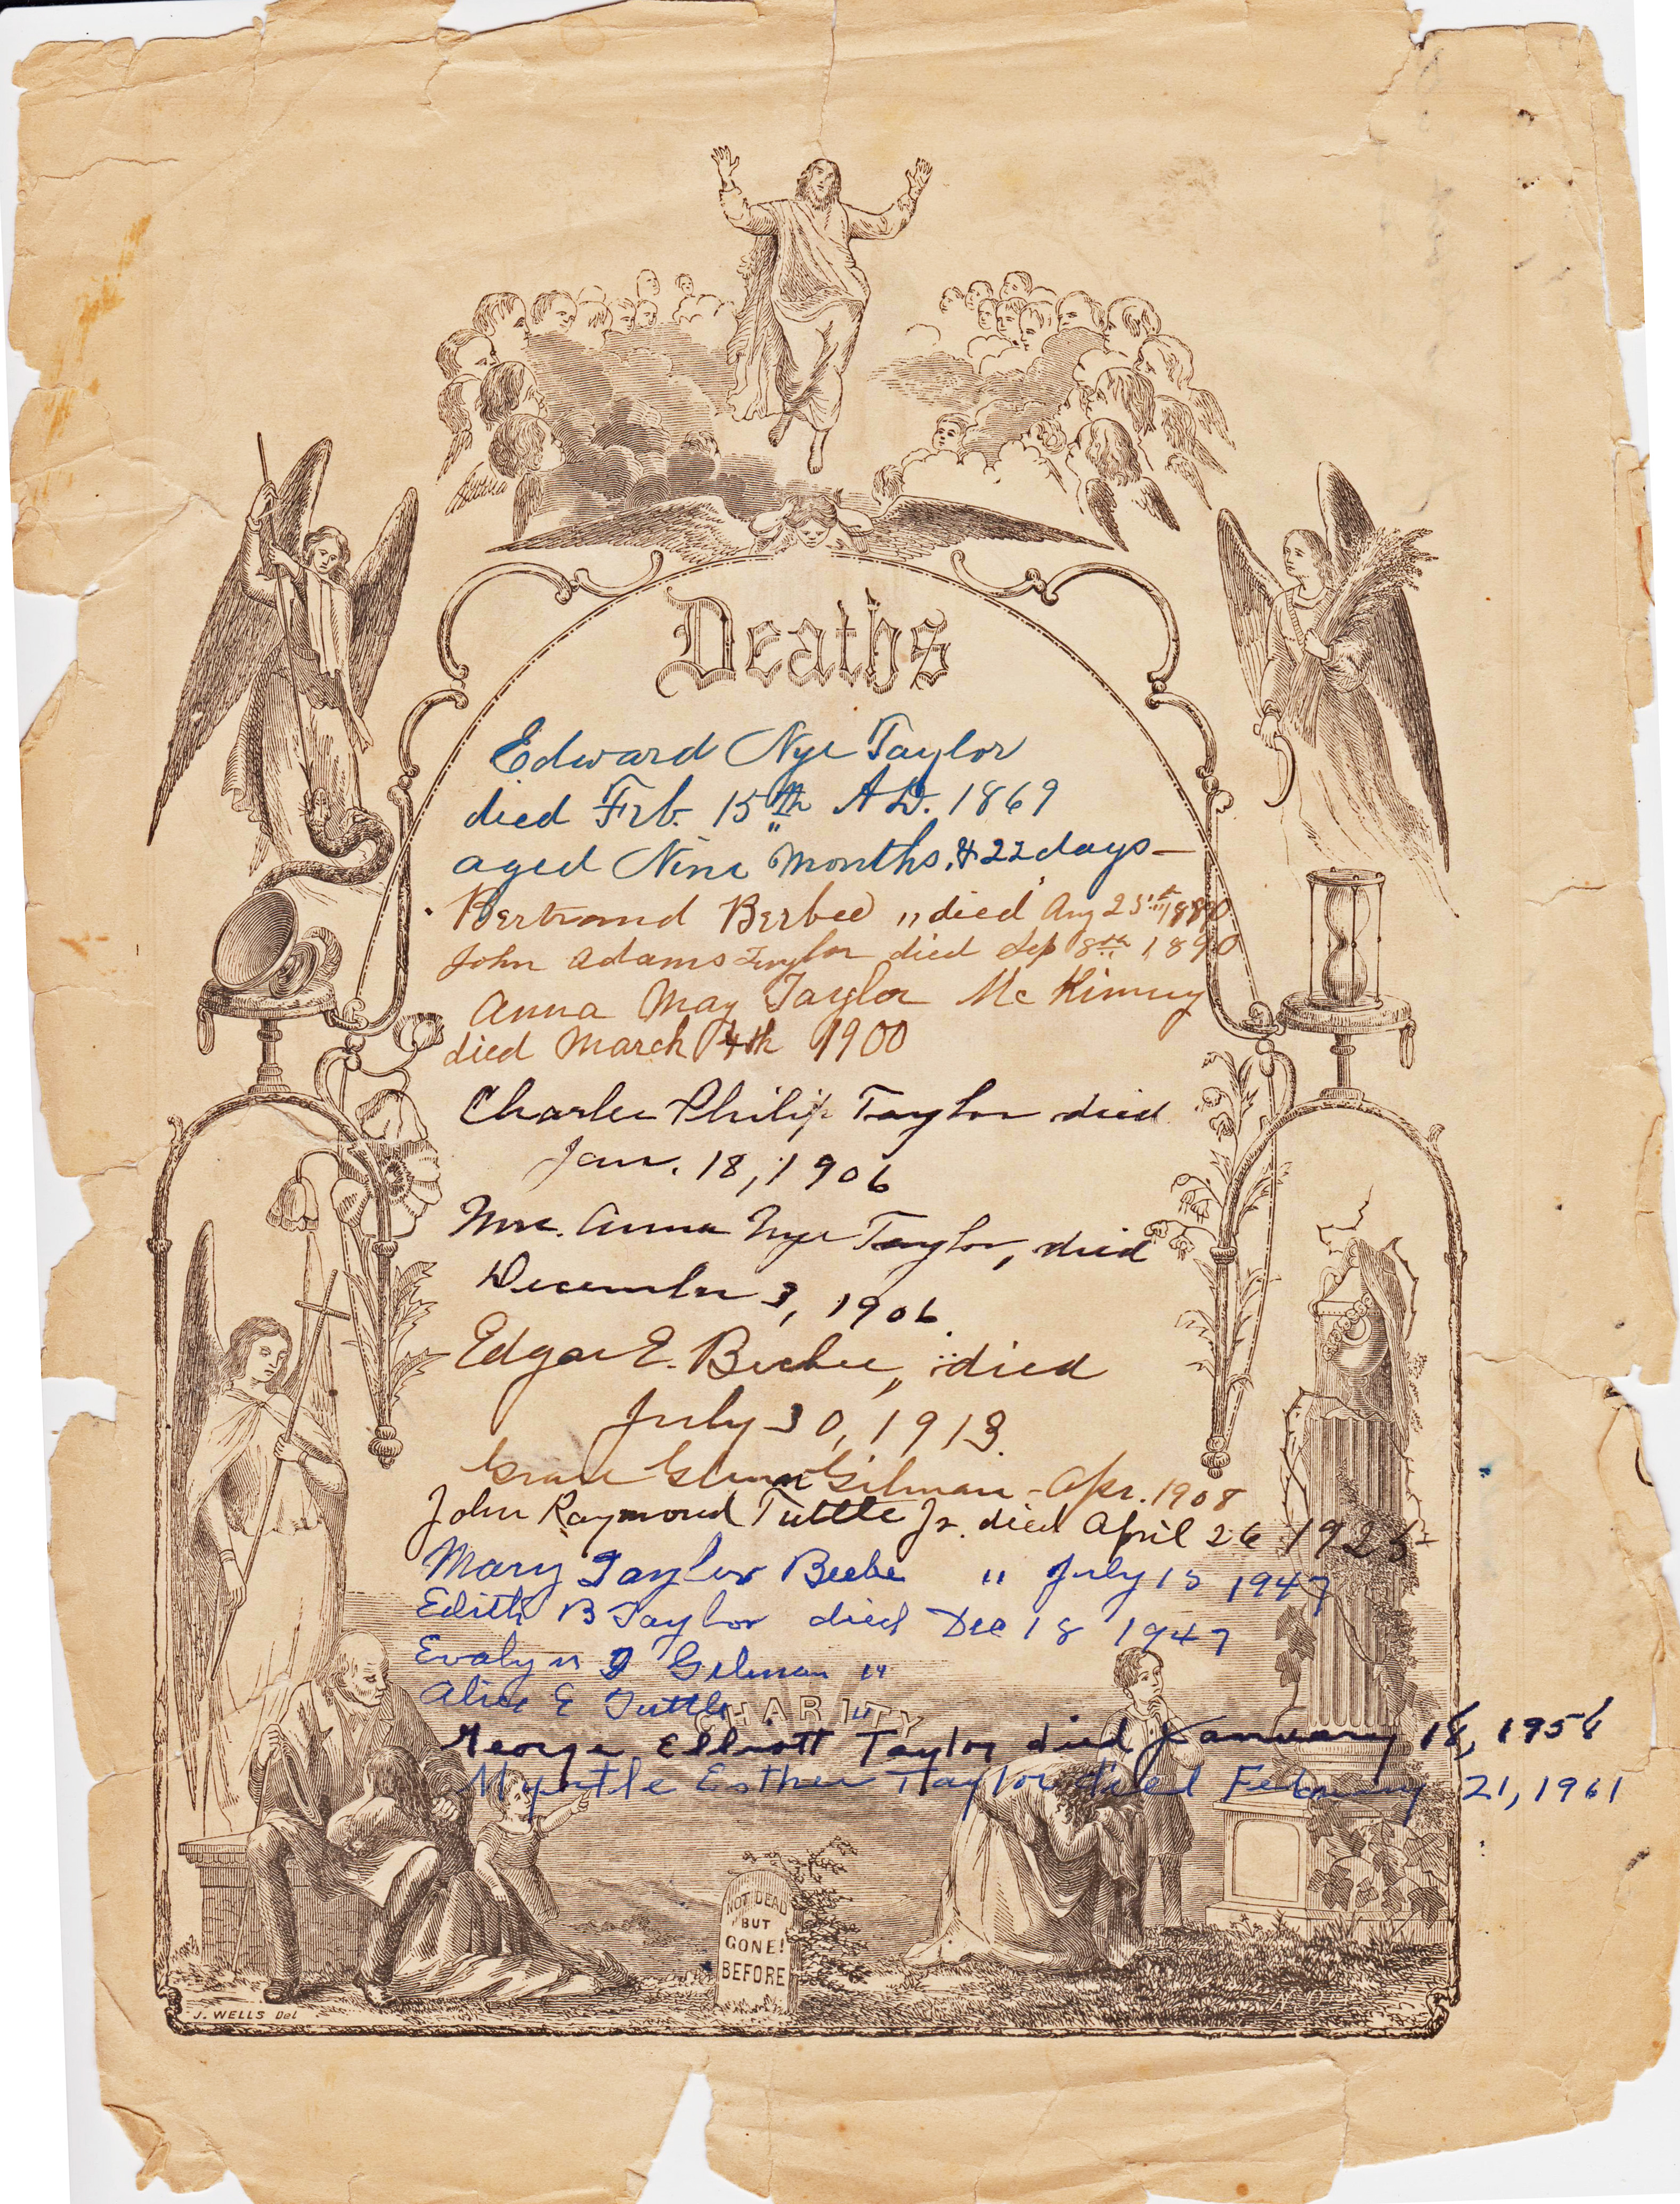 Deaths
Edward Nye Taylor
died Feb. 15th A.D. 1869
aged Nine Months, & 22 days —
Bertrand Beebee ,, died Aug 25th 1890
John Adams Taylor died Sep 8th 1890
Anna May Taylor McKinney
died March 4th 1900
Charles Philip Taylor died
Jan. 18, 1906
Mrs. Anna Nye Taylor, died
December 3, 1906.
Edgar E. Beebee,, died
July 30, 1913.
Grace Gilman - Apr. 1908
John Raymond Tuttle Jr. died April 26 1925
Mary Taylor Beebe " July 15 1947
Edith B Taylor died Dec 18 1947
Evalyn Gilman "
Alice E Tuttle "
CHARITY
George Elliott Taylor died January 18, 1956
Myrtle Esther Taylor died February 21, 1961
NOT DEAD
BUT
GONE!
BEFORE
J. WELLS Del
N. ORR